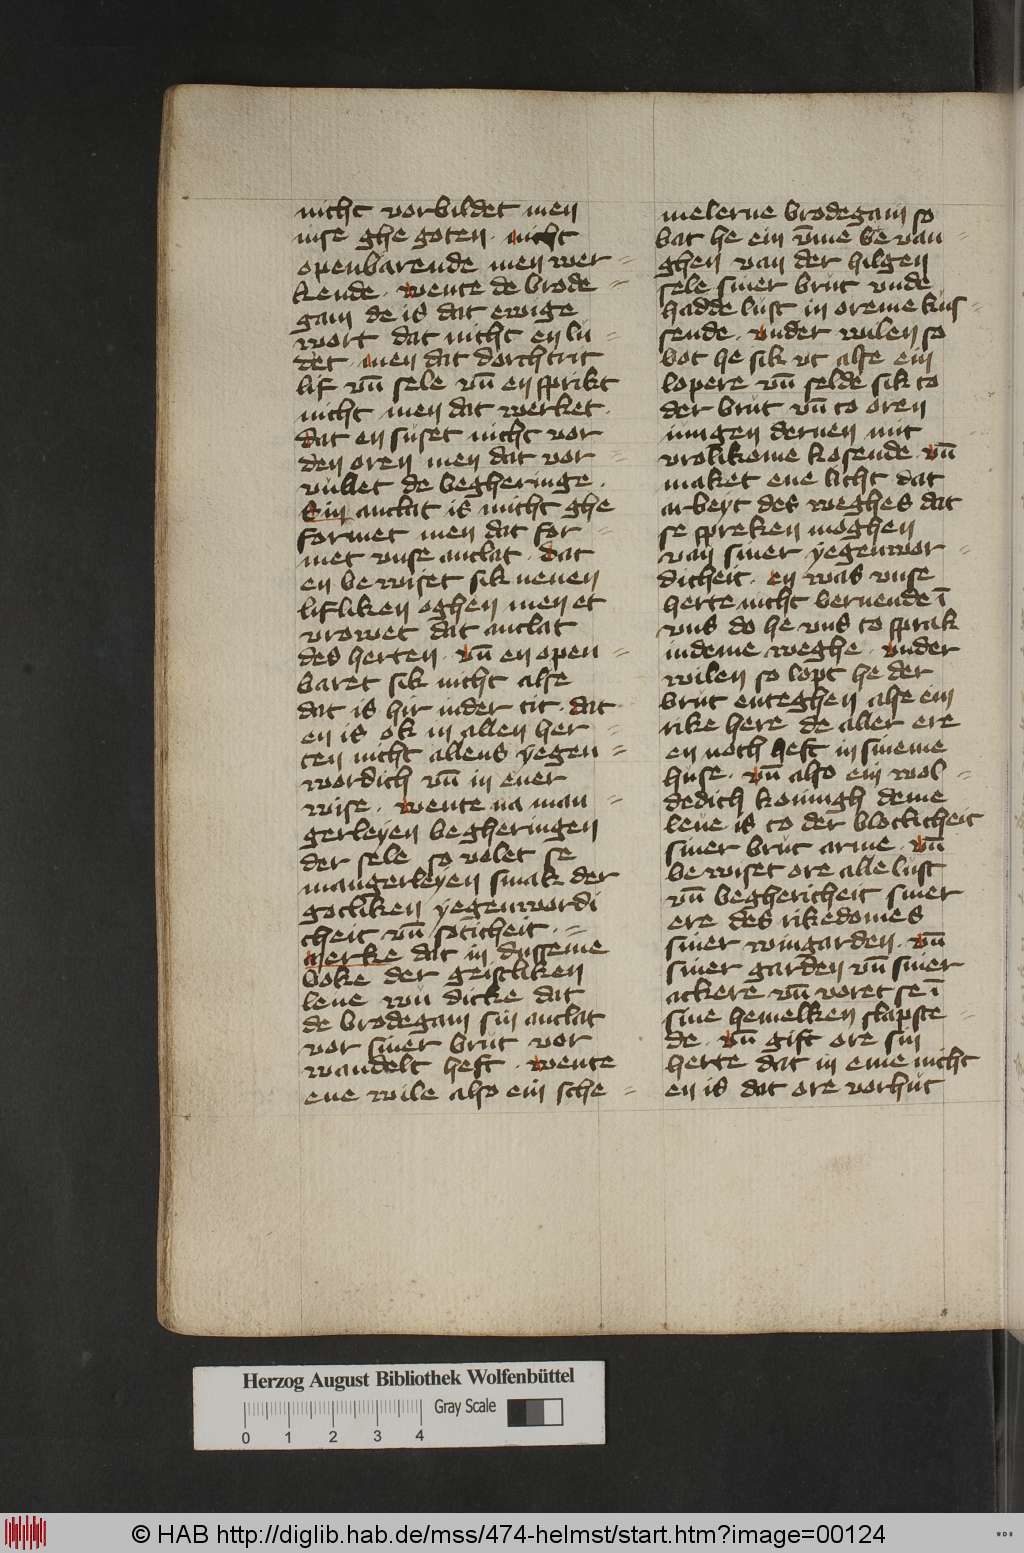 nicht vorbildet men
inse ghe goten · nicht
openbarende men wer=
kende · wente de brode=
gam de is dat ewige
wort dat nicht en lu=
det men dat dorchtrit
lif vn̄ sele vn̄ en sprikt
nicht men dat werket ·
dat en suset nicht vor
den oren men dat vor=
vullet de begheringe ·
Sin antlat is nicht ghe
formet men dat for=
met vnse antlat · dat
en bewiset sik nenen
lifliken oghen men et
vrowet dat antlat
des herten · vn̄ en open=
baret sik nicht alse
dat is hir inder tit · dat
en is ok in allen her=
ten nicht allens yegen=
wordich vn̄ in ener
wise · wente na man=
gerleyen begheringen
der sele so volet se
mangerleyen smak der
gotliken yegenwordi
cheit vn̄ soticheit ·=
Merke dat in dusseme
boke der geistliken
leue wu dicke dat
de brodegam sin antlat
vor siner brut vor
wandelt heft · wente
ene wile also ein sche=
melerne brodegam so
bat he ein vm̄e be van=
ghen van der hilgen
sele siner brut vnde
hadde lust in oreme kus=
sende · vnder wilen so
bot he sik vt alse ein
lopere vn̄ selde sik to
der brut vn̄ to oren
iungen dernen mit=
vrolikeme kosende · vn̄
maket ene licht dat
arbeyt des weghes dat
se spreken moghen
van siner yegenwor=
dicheit · en was vnse
herte nicht bernende ī
vns do he vns to sprak
indeme weghe · vnder
wilen so lopt he der
brut enteghen alse ein
rike here de aller ere
en noch heft in sineme
huse · vn̄ also ein wol=
dedich konnigh deme
leue is to der blotticheit
siner brut arme · vn̄
bewiset ore alle lust
vn̄ begherichheit siner
ere des rikedomes
siner wingarden · vn̄
siner garden vn̄ siner
ackere vn̄ voret se ī
sine hemelken slapste=
de · vn̄ gift ore sin
herte dat in eme nicht
en is dat ore vorhut
Herzog August Bibliothek Wolfenbüttel
Gray Scale
0 1 2 3 4
© HAB http://diglib.hab.de/mss/474-helmst/start.htm?image=00124